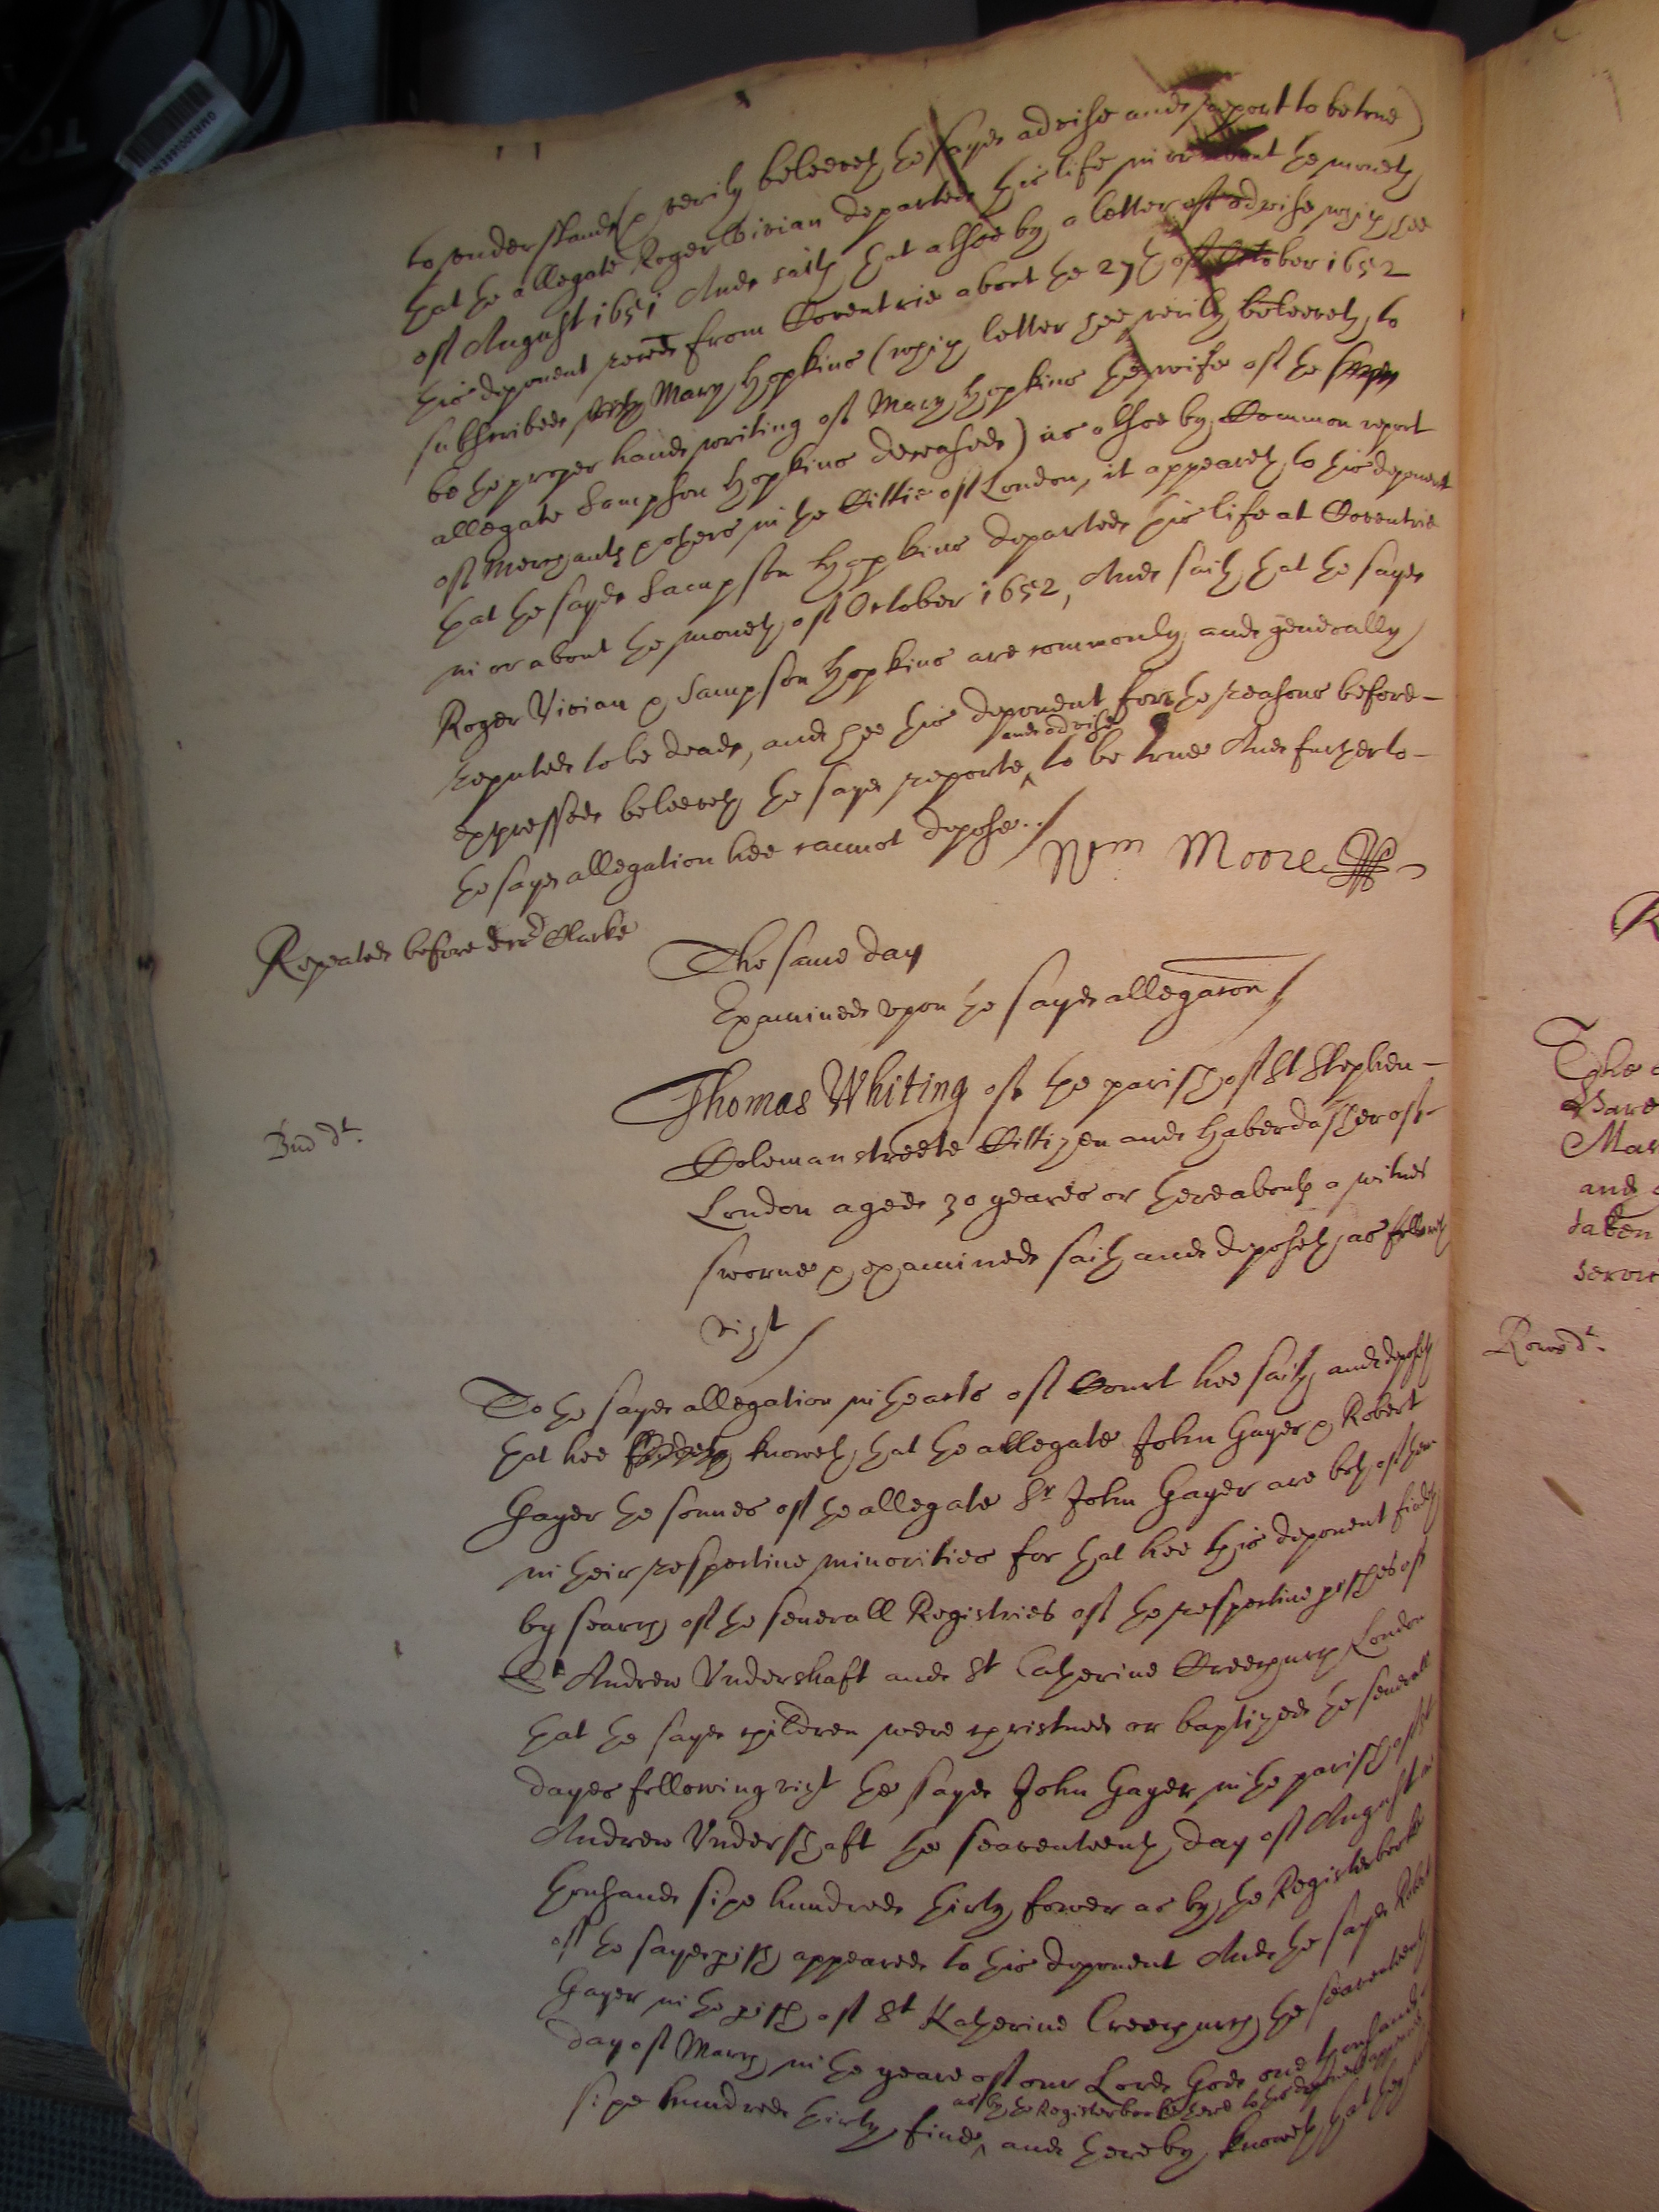 to understand & verily beleeveth the sayd advise and report to be true
that the allegate Roger Vivian departed this life in or about the moneth
of August 1651 And saith that alsoe by a letter of advise which hee
this deponent received from Coventrie about the 27th of October 1652
subscribed Mary Hopkins (which letter hee verily beleeveth to
be the proper hand writing of Mary Hopkins the wife of the
allegate Sampson Hopkins deceased) as alsoe by Common report
of Merchants & others in the Cittie of London, it appeareth to this deponent
that the sayd Sampson Hopkins departed this life at Coventrie
in or about the moneth of October 1652, And saith that the sayd
Roger Vivian & Sampson Hopkins are commonly and generally
reputed to be dead, and hee this deponent for the reasons before-
expressed beleeveth the sayd reporte and advise to be true And further to-
the sayd allegation hee cannot depose../
Wm Moore
Repeated before Clarke
The same day
Examined upon the sayd allegacon/
Thomas Whiting of the parish of St Stephen-
Colemanstreete Cittizen and Haberdasher of
London aged 30 yeares or thereabouts a witnes
sworne & examined saith and deposeth as followeth
vizt/
To the sayd allegation in the acts of Court hee saith and deposeth
that hee knoweth that the allegate John Gayer & Robert
Gayer the sonnes of the allegate Sr John Gayer are both of them
in their respective minorities for that hee this deponent findeth
by search of the severall Registries of the respective pishes of
St Andrew Undershaft and St Catherine Creechurch London
that the sayd children were christned or baptized the severall
dayes following vizt the sayd John Gayer in the parish of St
Andrew Undershaft the seaventeenth day of August in
thousand sixe hundred thirty fower as by the Register booke
of the sayd pish appeared to this deponent And the sayd Robert
Gayer in the pish of St Katherine Creechurch the seaventeenth
day of March in the yeare of our Lord God one thousand
sixe hundred thirty five as by the Register booke there to this deponent appeared and thereby knoweth that they